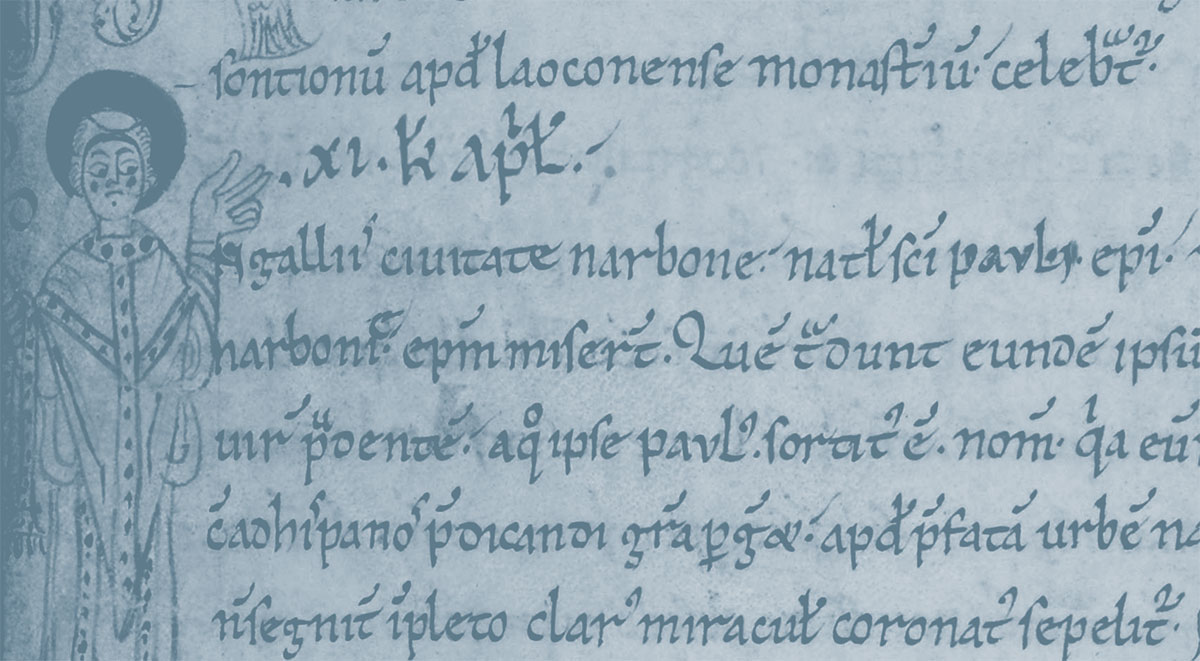 sontionū apđ laoconense monast̄iū· celeb̄t̄·
·xi· kł aprł·
galliis ciuitate narbone· natł sc̄i pauli ep̄i·
narboni· ep̄m miser̄t· Quē t̄dunt eundē ipsū
uir p̄dentē· a q̊ ipse paul᾿· sortit᾿ ē· nom̄· qa eū
c̄ ad hispanos p̄dicandi gr̄a pḡeret· apđ p̄fatā urbē na
n̄ segnit̄ īpleto clar᾿ miracuł coronat᾿ sepelit᾿·